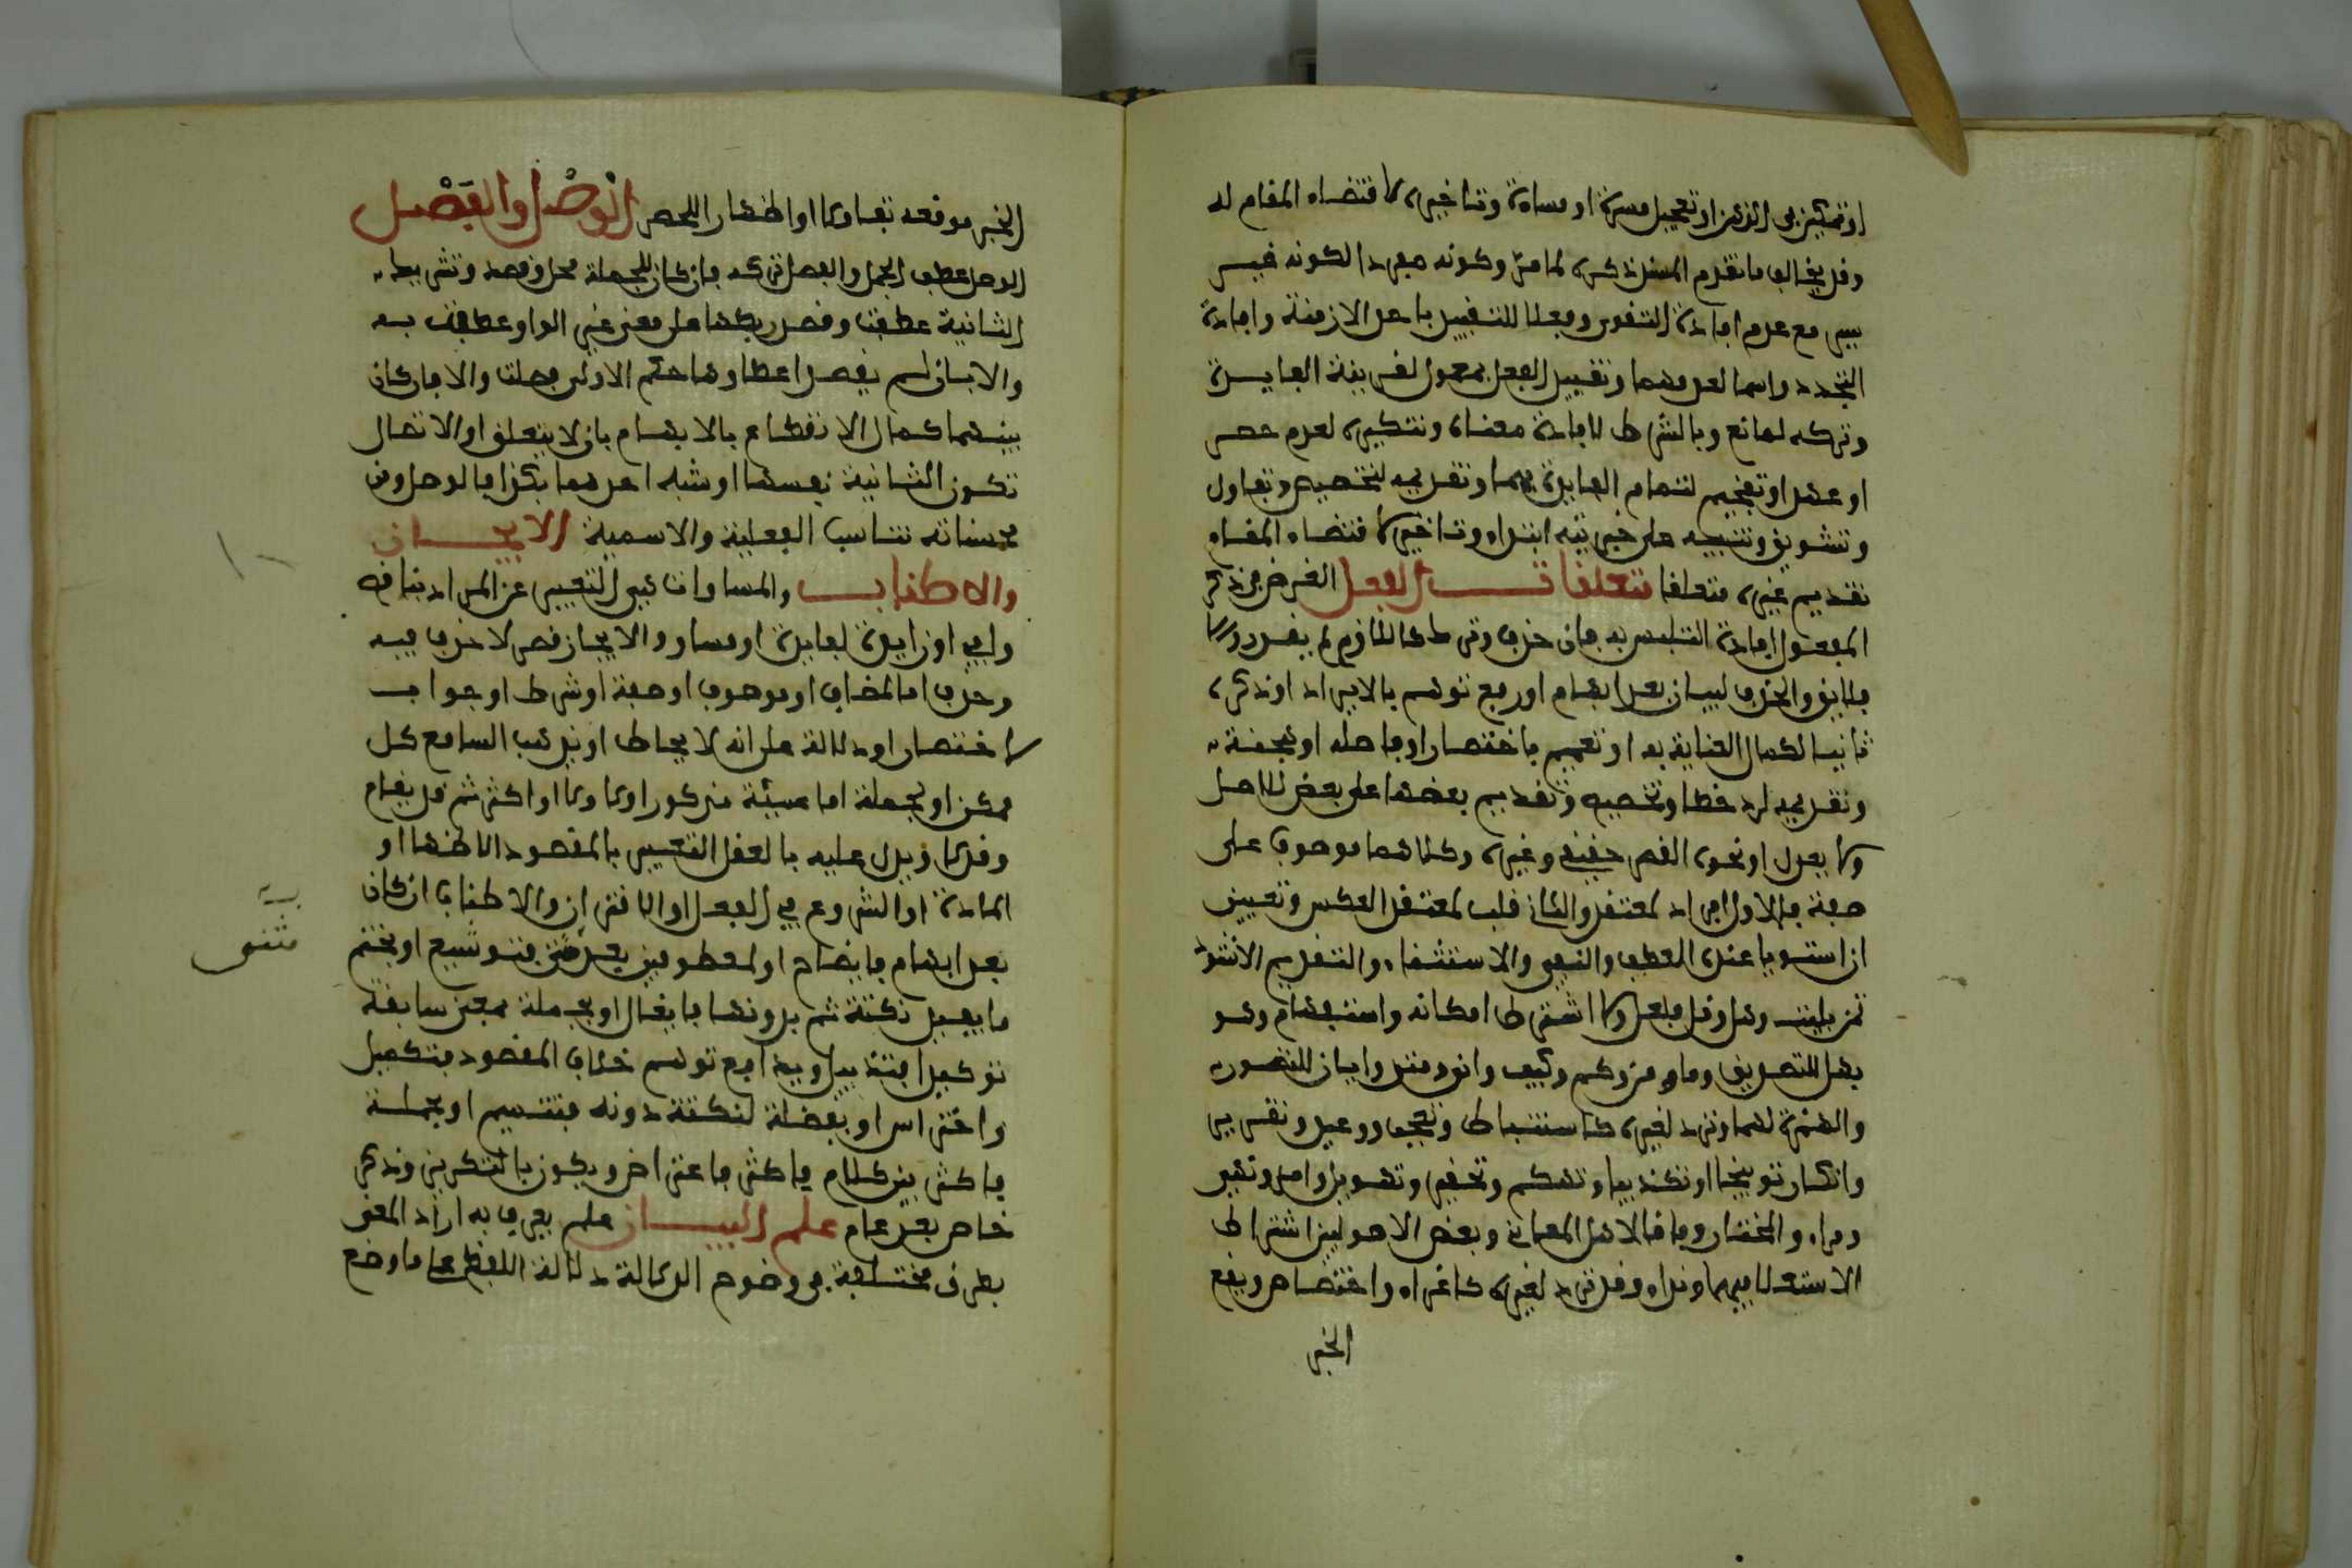 او تمكين في الذهن او تعجيل مسرة او مساءة وتاخيره لاقتضاء المقام له
وقد يخالف ما تقدم المسند ذكره لما مر وكونه مفردا لكونه غير سببي
مع عدم افادة التقوي وفعلا للتقييد باحد الازمنة وافادة
التجدد واسما لعدمهما وتقييد الفعل بمعمول لتربية الفايدة
وتركه لمانع وبالشرط لافادة معناه وتنكيره لعدم حصر
او عهد او تفخيم لتمام الفايدة بهما وتقديمه لتخصيص وتفاول
وتشويق وتنبيه على خبريته ابتداء وتاخيره لاقتضاء المقام
تقديم غيره متعلقا متعلقات الفعل الغرض من ذكر
المفعول افادة التلبس به فان حذف وترك كاللازم لم يقدر والا
فلايق والحذف لبيان بعد ابهام او رفع توهم بالايراد او ذكره
ثانيا لكمال العناية به او تعميم باختصار او فاصلة او هجنة
وتقديمه لرد خطا وتخصيص وتقديم بعضها على بعض للاصل
ولا يعدل او نحوه القصر حقيقي وغيره وكلاهما موصوف على
صفة فالاول افراد لمعتقد والثاني قلب لمعتقد العكس وتعيين
ان استويا عنده العطف والنفي والاستثناء والتقديم الانشاء
تمن بليت وهل وقل بلعل ولا اشترط امكانه واستفهام وهو
بهل للتصديق وما ومن وكم وكيف واني ومتى وايان للتصور
والهمزة لهما وترد لغيره كاستبطا وتعجب ووعيد وتقرير
وانكار توبيخا او تكذيبا وتهكم وتحقير وتهويل وامر ونهي
ومرا والمختار وفاقا لاهل المعاني وبعض الاصوليين اشتراط
الاستعلا فيهما ونداء وقد ترد لغيره كاغراء واختصاص ويقع
الخبر
الخبر موقعه تفاولا او اظهارا للحرص الوصل والفصل
الوصل عطف الجمل والفصل تركه فان كان للجملة محل وقصد تشريك
الثانية عطفت وقصد ربطها على معنى غير الواو عطفت به
والا بان لم يقصد اعطاوها حكم الاولى فصلت والا فان كان
بينهما كمال الانقطاع بلا ايهام بان لا يتعلق او الاتصال
تكون الثانية نفسها او شبه احدهما فكذا فالوصل ومن
محسناته تناسب الفعلية والاسمية الايجاز
والاطناب والمساواة هي التعبير عن المراد بناقص
واف او زايد لفايدة او مساو والايجاز قصر لا حذف فيه
وحذف اما لمضاف او موصوف او صفة او شرط او جواب
لاختصار او دلالة على انه لا يحاط او يذهب السامع كل
ممكن او لجملة اما مسببة مذكور او لا ولا او اكثر ثم قد يقام
وقد لا ويدل عليه بالعقل التعيين بالمقصود الاظهر او
العادة او الشروع في الفعل او الاقتران والاطناب ان كان
بعد ابهام فايضاح او لمعطوفين بعد مثنى فتوشيع او بختم
ما يفيد نكتة تم بدونها فايغال او بجملة بمعنى سابقة
توكيدا فتذييل وبدافع توهم خلاف المقصود فتكميل
واحتراس او بفضلة لنكتة دونه فتتميم او بجملة
فاكثر بين كلام فاكثر فاعتراض ويكون بالتكرير وذكر
خاص بعد عام علم البيان علم يعرف به ايراد المعنى
بطرق مختلفة في وضوح الدلالة دلالة اللفظ على ما وضع
مثنى